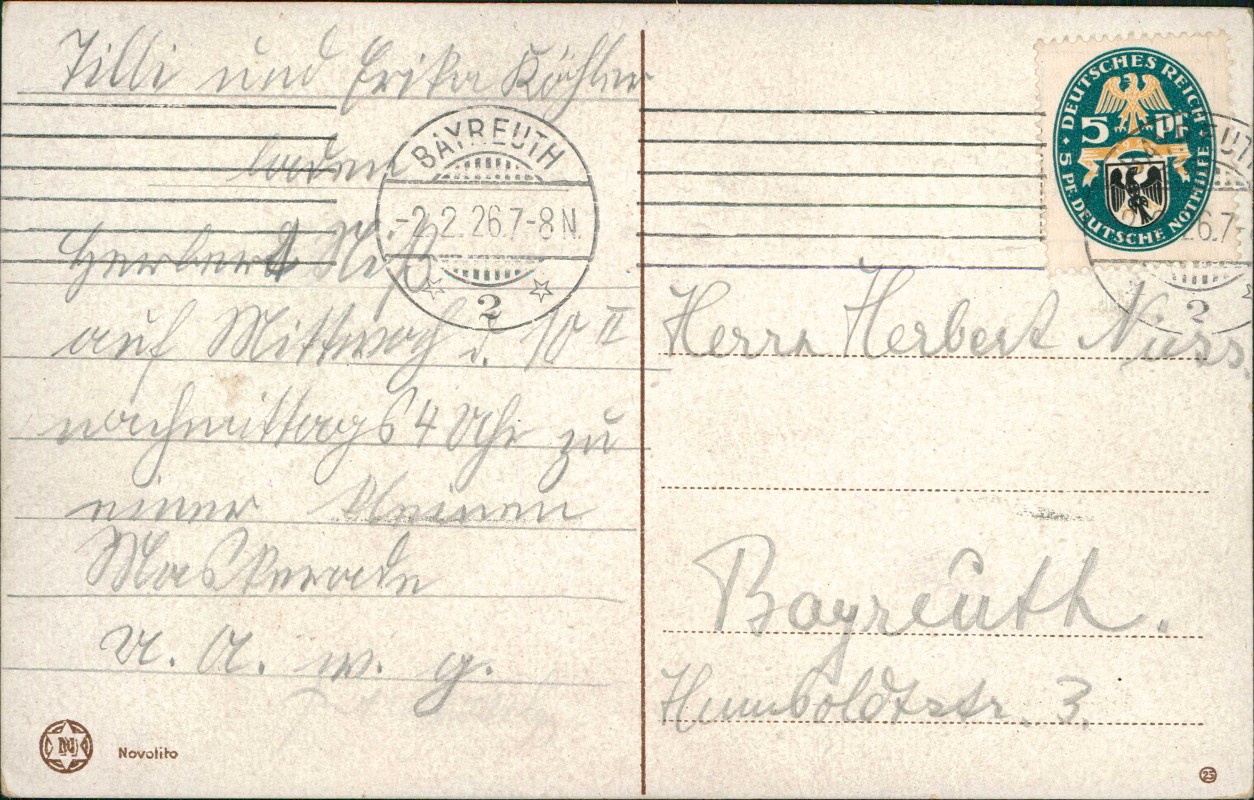 Tilli und Erika Köhler
laden
Herbert Nuß
auf Mittwoch d. 10 II
nachmittags 4 Uhr zu
einer kleinen
Maskerade
U. A. w. g.
Novolito
BAYREUTH
-2.2.26.7-8 N.
2
DEUTSCHES REICH
5 Pf
5 PF. DEUTSCHE NOTHILFE
26.7-
2
Herrn Herbert Nuss.
Bayreuth.
Humboldtstr. 3.
25